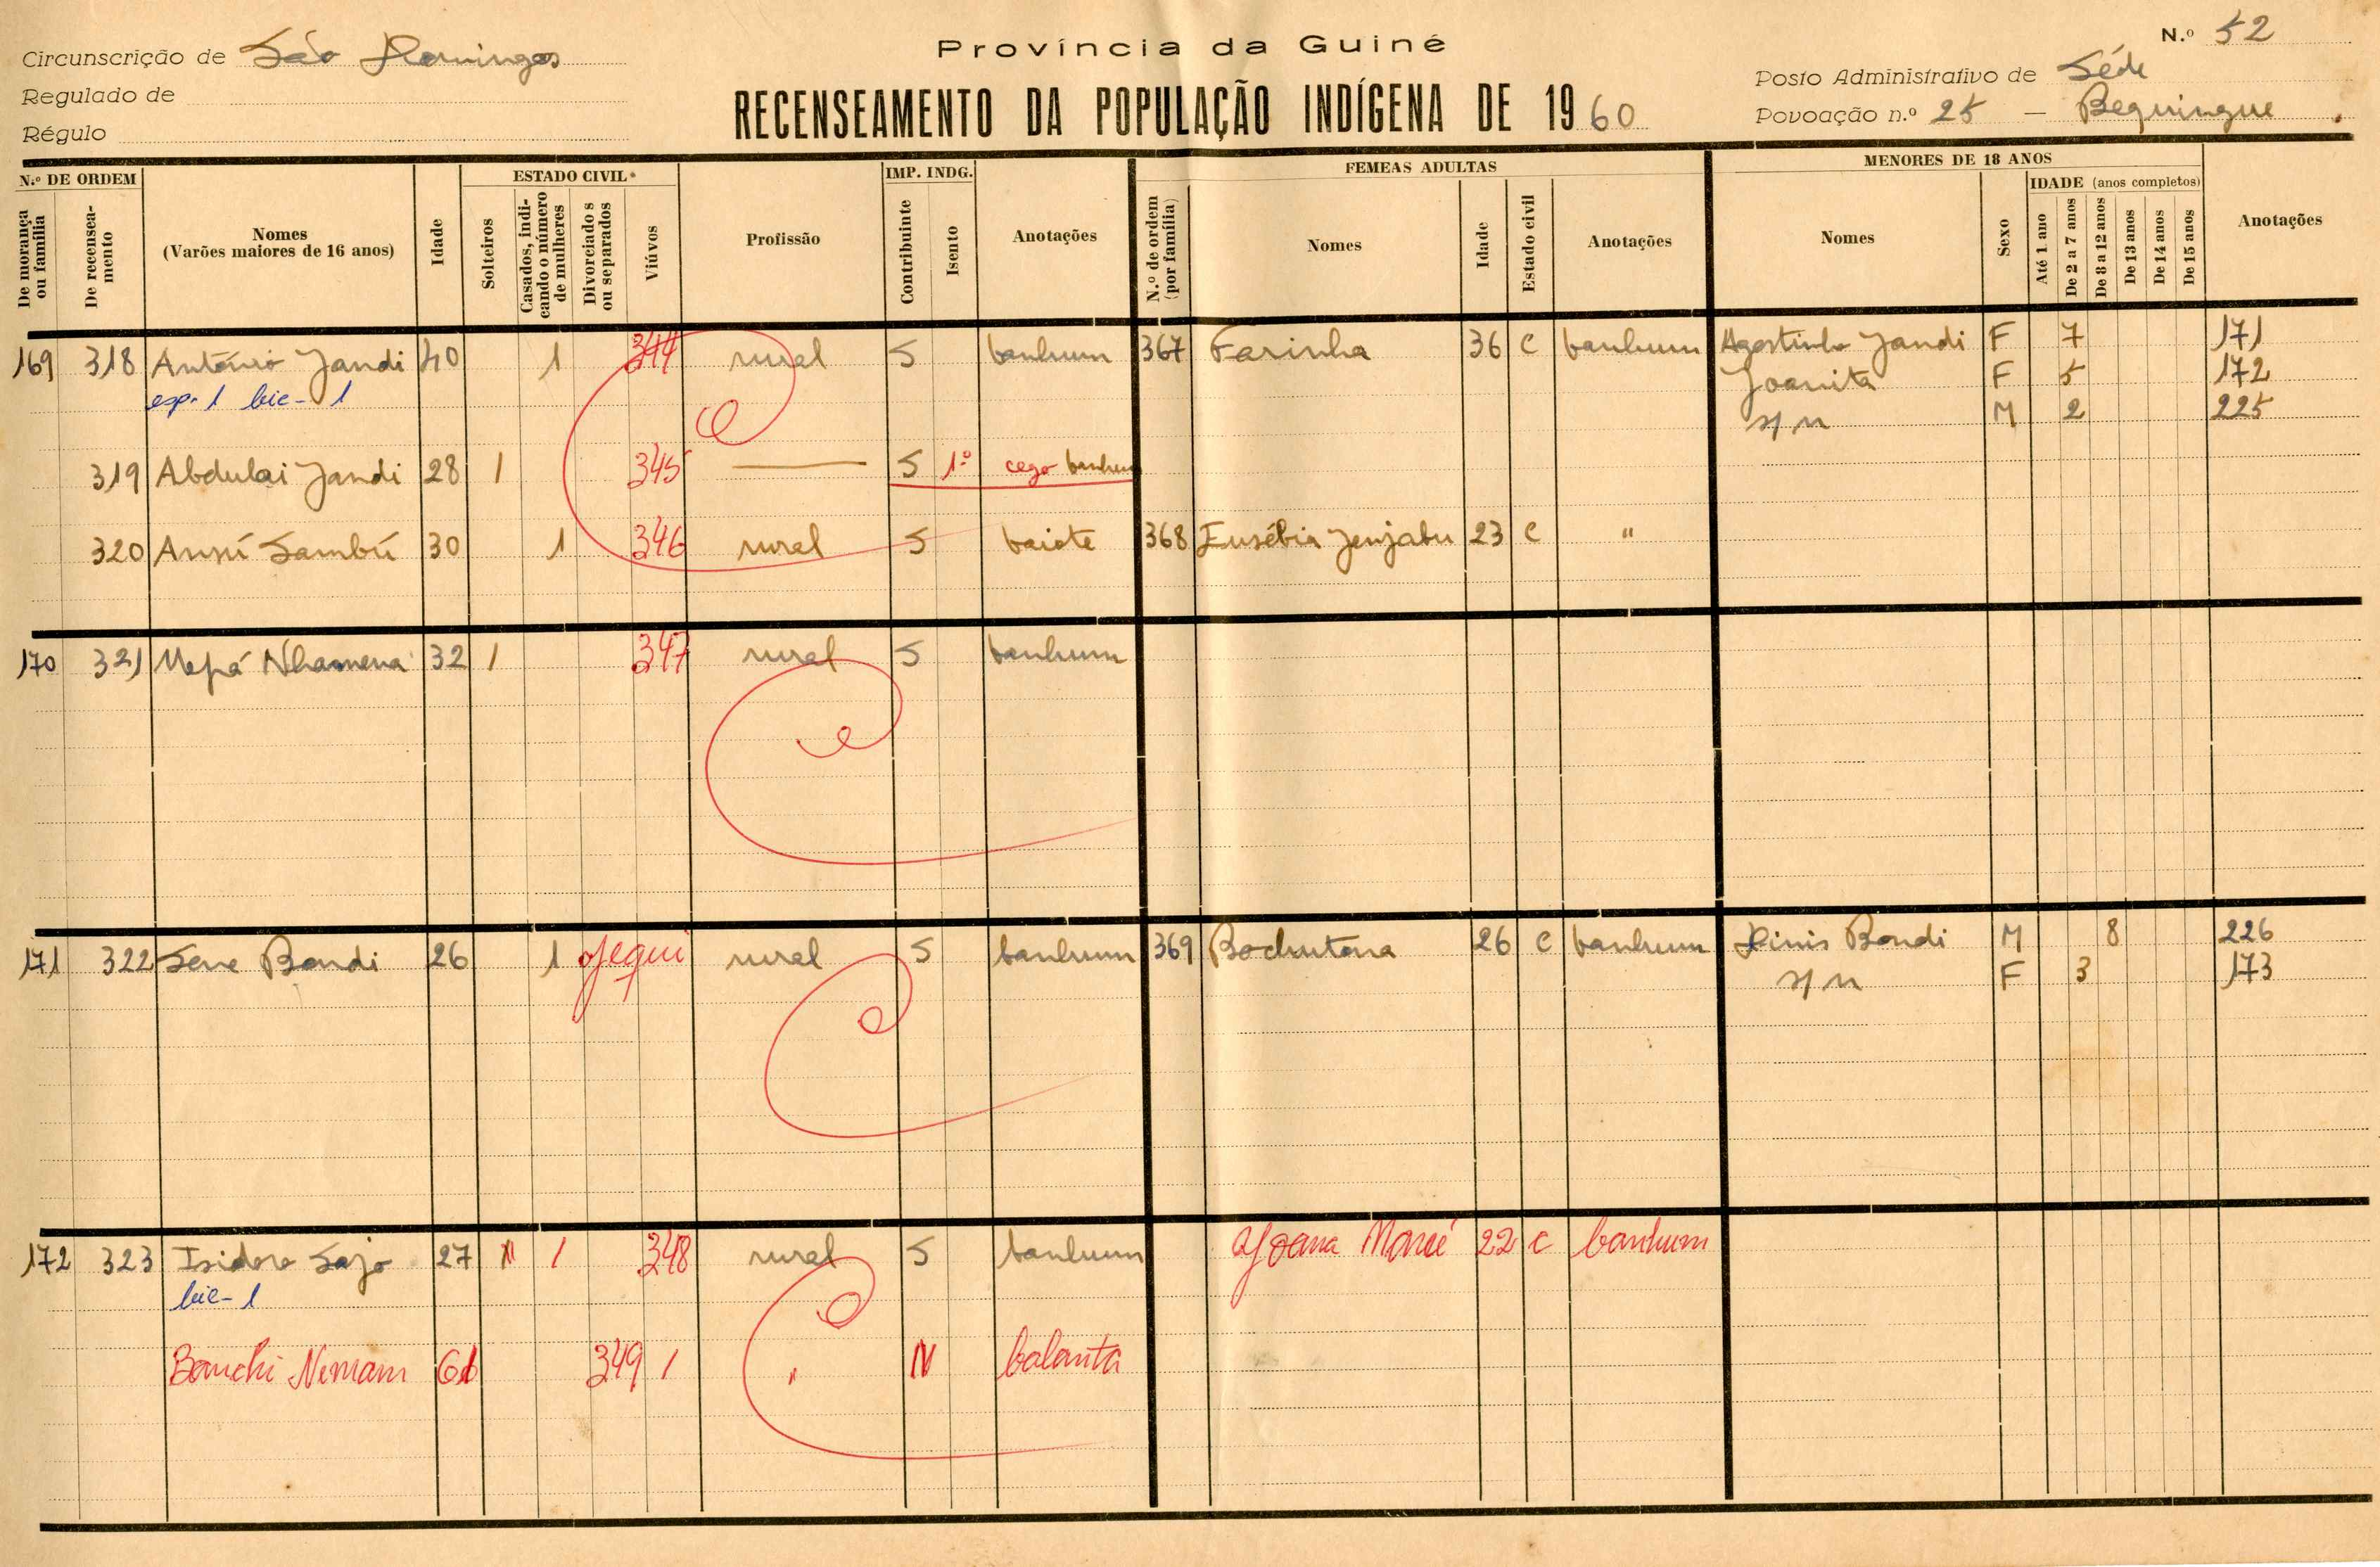 N.º 52
Província da Guiné
Circunscrição de São Domingos
Posto Administrativo de Séde
Regulado de
RECENSEAMENTO DA POPULAÇÃO INDÍGENA DE 1960
Povoação n.º 25 — Bequingue
Régulo
N.º DE ORDEM
ESTADO CIVIL
IMP. INDG.
FEMEAS ADULTAS
MENORES DE 18 ANOS
IDADE (anos completos)
De morança ou família
De recenseamento
Nomes (Varões maiores de 16 anos)
Idade
Solteiros
Casados, indicando o número de mulheres
Divorciados ou separados
Viúvos
Profissão
Contribuinte
Isento
Anotações
N.º de ordem (por família)
Nomes
Idade
Estado civil
Anotações
Nomes
Sexo
Até 1 ano
De 2 a 7 anos
De 8 a 12 anos
De 13 anos
De 14 anos
De 15 anos
Anotações
169 318 António Jandi 40 1 344 rural S banhum 367 Farinha 36 C banhum Agostinho Jandi F 7 171
esp. 1 bic- 1 Joanita F 5 172
s/n M 2 225
319 Abdulai Jandi 28 1 345 — S 1º cego banhum
320 Ansú Sambú 30 1 346 rural S baiote 368 Eusébia Jenjabu 23 C "
170 321 Mepá Nhamena 32 1 347 rural S banhum
171 322 Sene Bandi 26 1 Jequi rural S banhum 369 Bochutana 26 C banhum Dinis Bandi M 8 226
s/n F 3 173
172 323 Isidoro Sajo 27 1 348 rural S banhum Joana Marcé 22 C banhum
bic- 1
Banchi Nemam 349 1 " N balanta